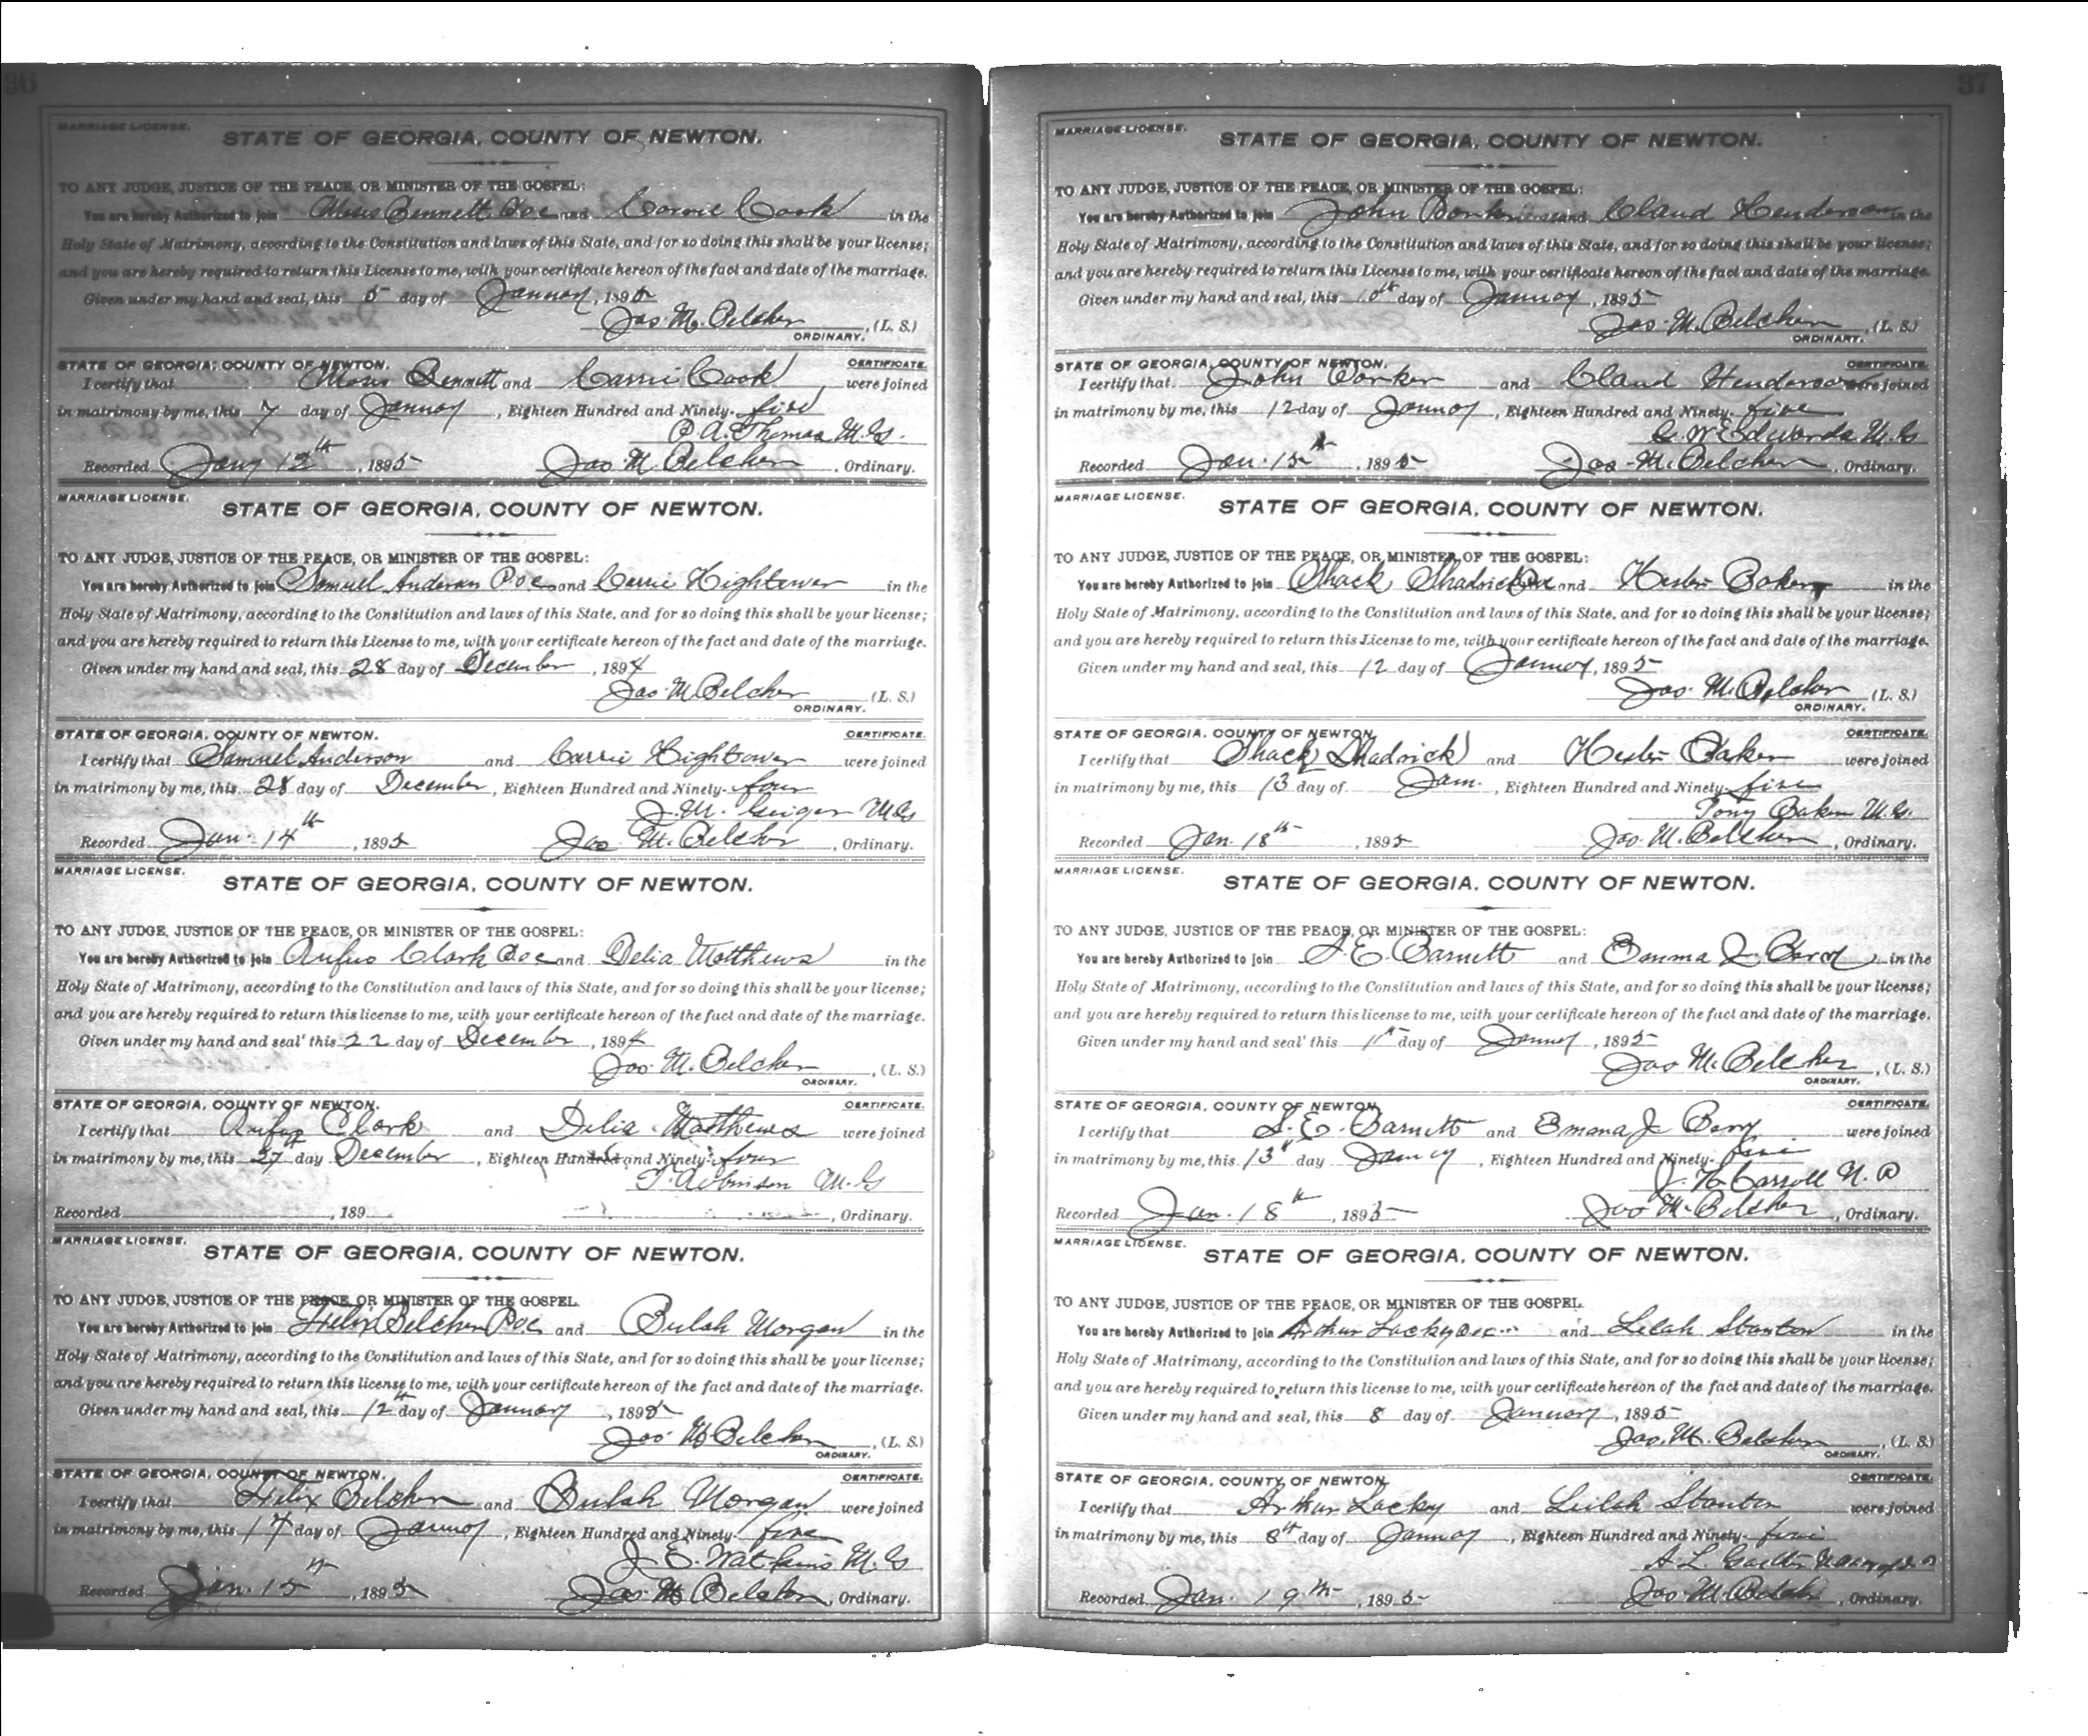 96
MARRIAGE LICENSE.
STATE OF GEORGIA, COUNTY OF NEWTON.
TO ANY JUDGE, JUSTICE OF THE PEACE, OR MINISTER OF THE GOSPEL:
You are hereby Authorized to join Moses Bennett Poc and Carrie Cook in the
Holy State of Matrimony, according to the Constitution and laws of this State, and for so doing this shall be your license;
and you are hereby required to return this License to me, with your certificate hereon of the fact and date of the marriage.
Given under my hand and seal, this 5 day of January, 1895
Jas. M. Belcher, (L. S.)
ORDINARY.
STATE OF GEORGIA; COUNTY OF NEWTON. CERTIFICATE.
I certify that Moses Bennett and Carrie Cook, were joined
in matrimony by me, this 7 day of January, Eighteen Hundred and Ninety-five
P. A. Thomas M.G.
Recorded Jany 12th, 1895 Jas M. Belcher, Ordinary.
MARRIAGE LICENSE.
STATE OF GEORGIA, COUNTY OF NEWTON.
TO ANY JUDGE, JUSTICE OF THE PEACE, OR MINISTER OF THE GOSPEL:
You are hereby Authorized to join Samuel Anderson Poc and Carrie Hightower in the
Holy State of Matrimony, according to the Constitution and laws of this State, and for so doing this shall be your license;
and you are hereby required to return this License to me, with your certificate hereon of the fact and date of the marriage.
Given under my hand and seal, this 28 day of December, 1894
Jas M Belcher (L. S.)
ORDINARY.
STATE OF GEORGIA, COUNTY OF NEWTON. CERTIFICATE.
I certify that Samuel Anderson and Carrie Hightower were joined
in matrimony by me, this 28 day of December, Eighteen Hundred and Ninety-four
J. M. Geiger M.G
Recorded Jan. 14th, 1895 Jas M. Belcher, Ordinary.
MARRIAGE LICENSE.
STATE OF GEORGIA, COUNTY OF NEWTON.
TO ANY JUDGE, JUSTICE OF THE PEACE, OR MINISTER OF THE GOSPEL:
You are hereby Authorized to join Rufus Clark Poc and Delia Matthews in the
Holy State of Matrimony, according to the Constitution and laws of this State, and for so doing this shall be your license;
and you are hereby required to return this license to me, with your certificate hereon of the fact and date of the marriage.
Given under my hand and seal this 22 day of December, 1894
Jas. M. Belcher, (L. S.)
ORDINARY.
STATE OF GEORGIA, COUNTY OF NEWTON. CERTIFICATE.
I certify that Rufus Clark and Delia Matthews were joined
in matrimony by me, this 27 day December, Eighteen Hundred and Ninety-four
Robinson M.G
Recorded, 189 , Ordinary.
MARRIAGE LICENSE.
STATE OF GEORGIA, COUNTY OF NEWTON.
TO ANY JUDGE, JUSTICE OF THE PEACE, OR MINISTER OF THE GOSPEL.
You are hereby Authorized to join Felix Belcher Poc and Bulah Morgan in the
Holy State of Matrimony, according to the Constitution and laws of this State, and for so doing this shall be your license;
and you are hereby required to return this license to me, with your certificate hereon of the fact and date of the marriage.
Given under my hand and seal, this 12th day of January, 1895
Jas M Belcher, (L. S.)
ORDINARY.
STATE OF GEORGIA, COUNTY OF NEWTON. CERTIFICATE.
I certify that Felix Belcher and Bulah Morgan were joined
in matrimony by me, this 14 day of January, Eighteen Hundred and Ninety-five
J. E. Watkins M.G
Recorded Jan. 15th, 1895 Jas M Belcher, Ordinary.
97
MARRIAGE LICENSE.
STATE OF GEORGIA, COUNTY OF NEWTON.
TO ANY JUDGE, JUSTICE OF THE PEACE, OR MINISTER OF THE GOSPEL:
You are hereby Authorized to join John and Claud Henderson in the
Holy State of Matrimony, according to the Constitution and laws of this State, and for so doing this shall be your license;
and you are hereby required to return this License to me, with your certificate hereon of the fact and date of the marriage.
Given under my hand and seal, this 10th day of January, 1895
Jas. M. Belcher, (L. S.)
ORDINARY.
STATE OF GEORGIA, COUNTY OF NEWTON. CERTIFICATE.
I certify that John and Claud Henderson were joined
in matrimony by me, this 12 day of January, Eighteen Hundred and Ninety-five
W Edwards M.G
Recorded Jan. 15th, 1895 Jas. M. Belcher, Ordinary.
MARRIAGE LICENSE.
STATE OF GEORGIA, COUNTY OF NEWTON.
TO ANY JUDGE, JUSTICE OF THE PEACE, OR MINISTER OF THE GOSPEL:
You are hereby Authorized to join Shack Shadrick Poc and Hester Baker in the
Holy State of Matrimony, according to the Constitution and laws of this State, and for so doing this shall be your license;
and you are hereby required to return this License to me, with your certificate hereon of the fact and date of the marriage.
Given under my hand and seal, this 12 day of January, 1895
Jas. M. Belcher (L. S.)
ORDINARY.
STATE OF GEORGIA, COUNTY OF NEWTON. CERTIFICATE.
I certify that Shack Shadrick and Hester Baker were joined
in matrimony by me, this 13 day of Jan., Eighteen Hundred and Ninety-five
Tony Baker M.G.
Recorded Jan. 18th, 1895 Jas. M. Belcher, Ordinary.
MARRIAGE LICENSE.
STATE OF GEORGIA, COUNTY OF NEWTON.
TO ANY JUDGE, JUSTICE OF THE PEACE, OR MINISTER OF THE GOSPEL:
You are hereby Authorized to join S. E. Barnett and Emma J. in the
Holy State of Matrimony, according to the Constitution and laws of this State, and for so doing this shall be your license;
and you are hereby required to return this license to me, with your certificate hereon of the fact and date of the marriage.
Given under my hand and seal this 11th day of January, 1895
Jas M. Belcher, (L. S.)
ORDINARY.
STATE OF GEORGIA, COUNTY OF NEWTON. CERTIFICATE.
I certify that S. E. Barnett and Emma J. were joined
in matrimony by me, this 13th day January, Eighteen Hundred and Ninety-five
J. H Carroll N. P
Recorded Jan. 18th, 1895 Jas M. Belcher, Ordinary.
MARRIAGE LICENSE.
STATE OF GEORGIA, COUNTY OF NEWTON.
TO ANY JUDGE, JUSTICE OF THE PEACE, OR MINISTER OF THE GOSPEL.
You are hereby Authorized to join Arthur Lacky Poc and Lelah Stanton in the
Holy State of Matrimony, according to the Constitution and laws of this State, and for so doing this shall be your license;
and you are hereby required to return this license to me, with your certificate hereon of the fact and date of the marriage.
Given under my hand and seal, this 8 day of January, 1895
Jas. M. Belcher, (L. S.)
ORDINARY.
STATE OF GEORGIA, COUNTY OF NEWTON. CERTIFICATE.
I certify that Arthur Lacky and Leilah Stanton were joined
in matrimony by me, this 8th day of January, Eighteen Hundred and Ninety-five
A. L.
Recorded Jan. 19th, 1895 Jas M. Belcher, Ordinary.